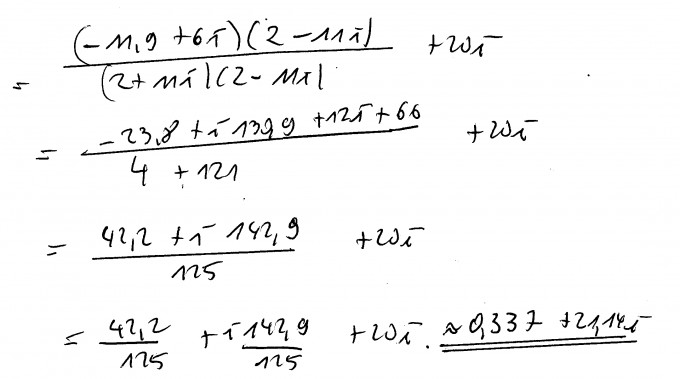 = (-11,9 + 6i)(2 - 11i) / (2 + 11i)(2 - 11i) + 20i
= -23,8 + i 1399 + 12i + 66 / 4 + 121 + 20i
= 42,2 + i 142,9 / 125 + 20i
= 42,2 / 125 + i 142,9 / 125 + 20i. ≈ 0,337 + 21,14i